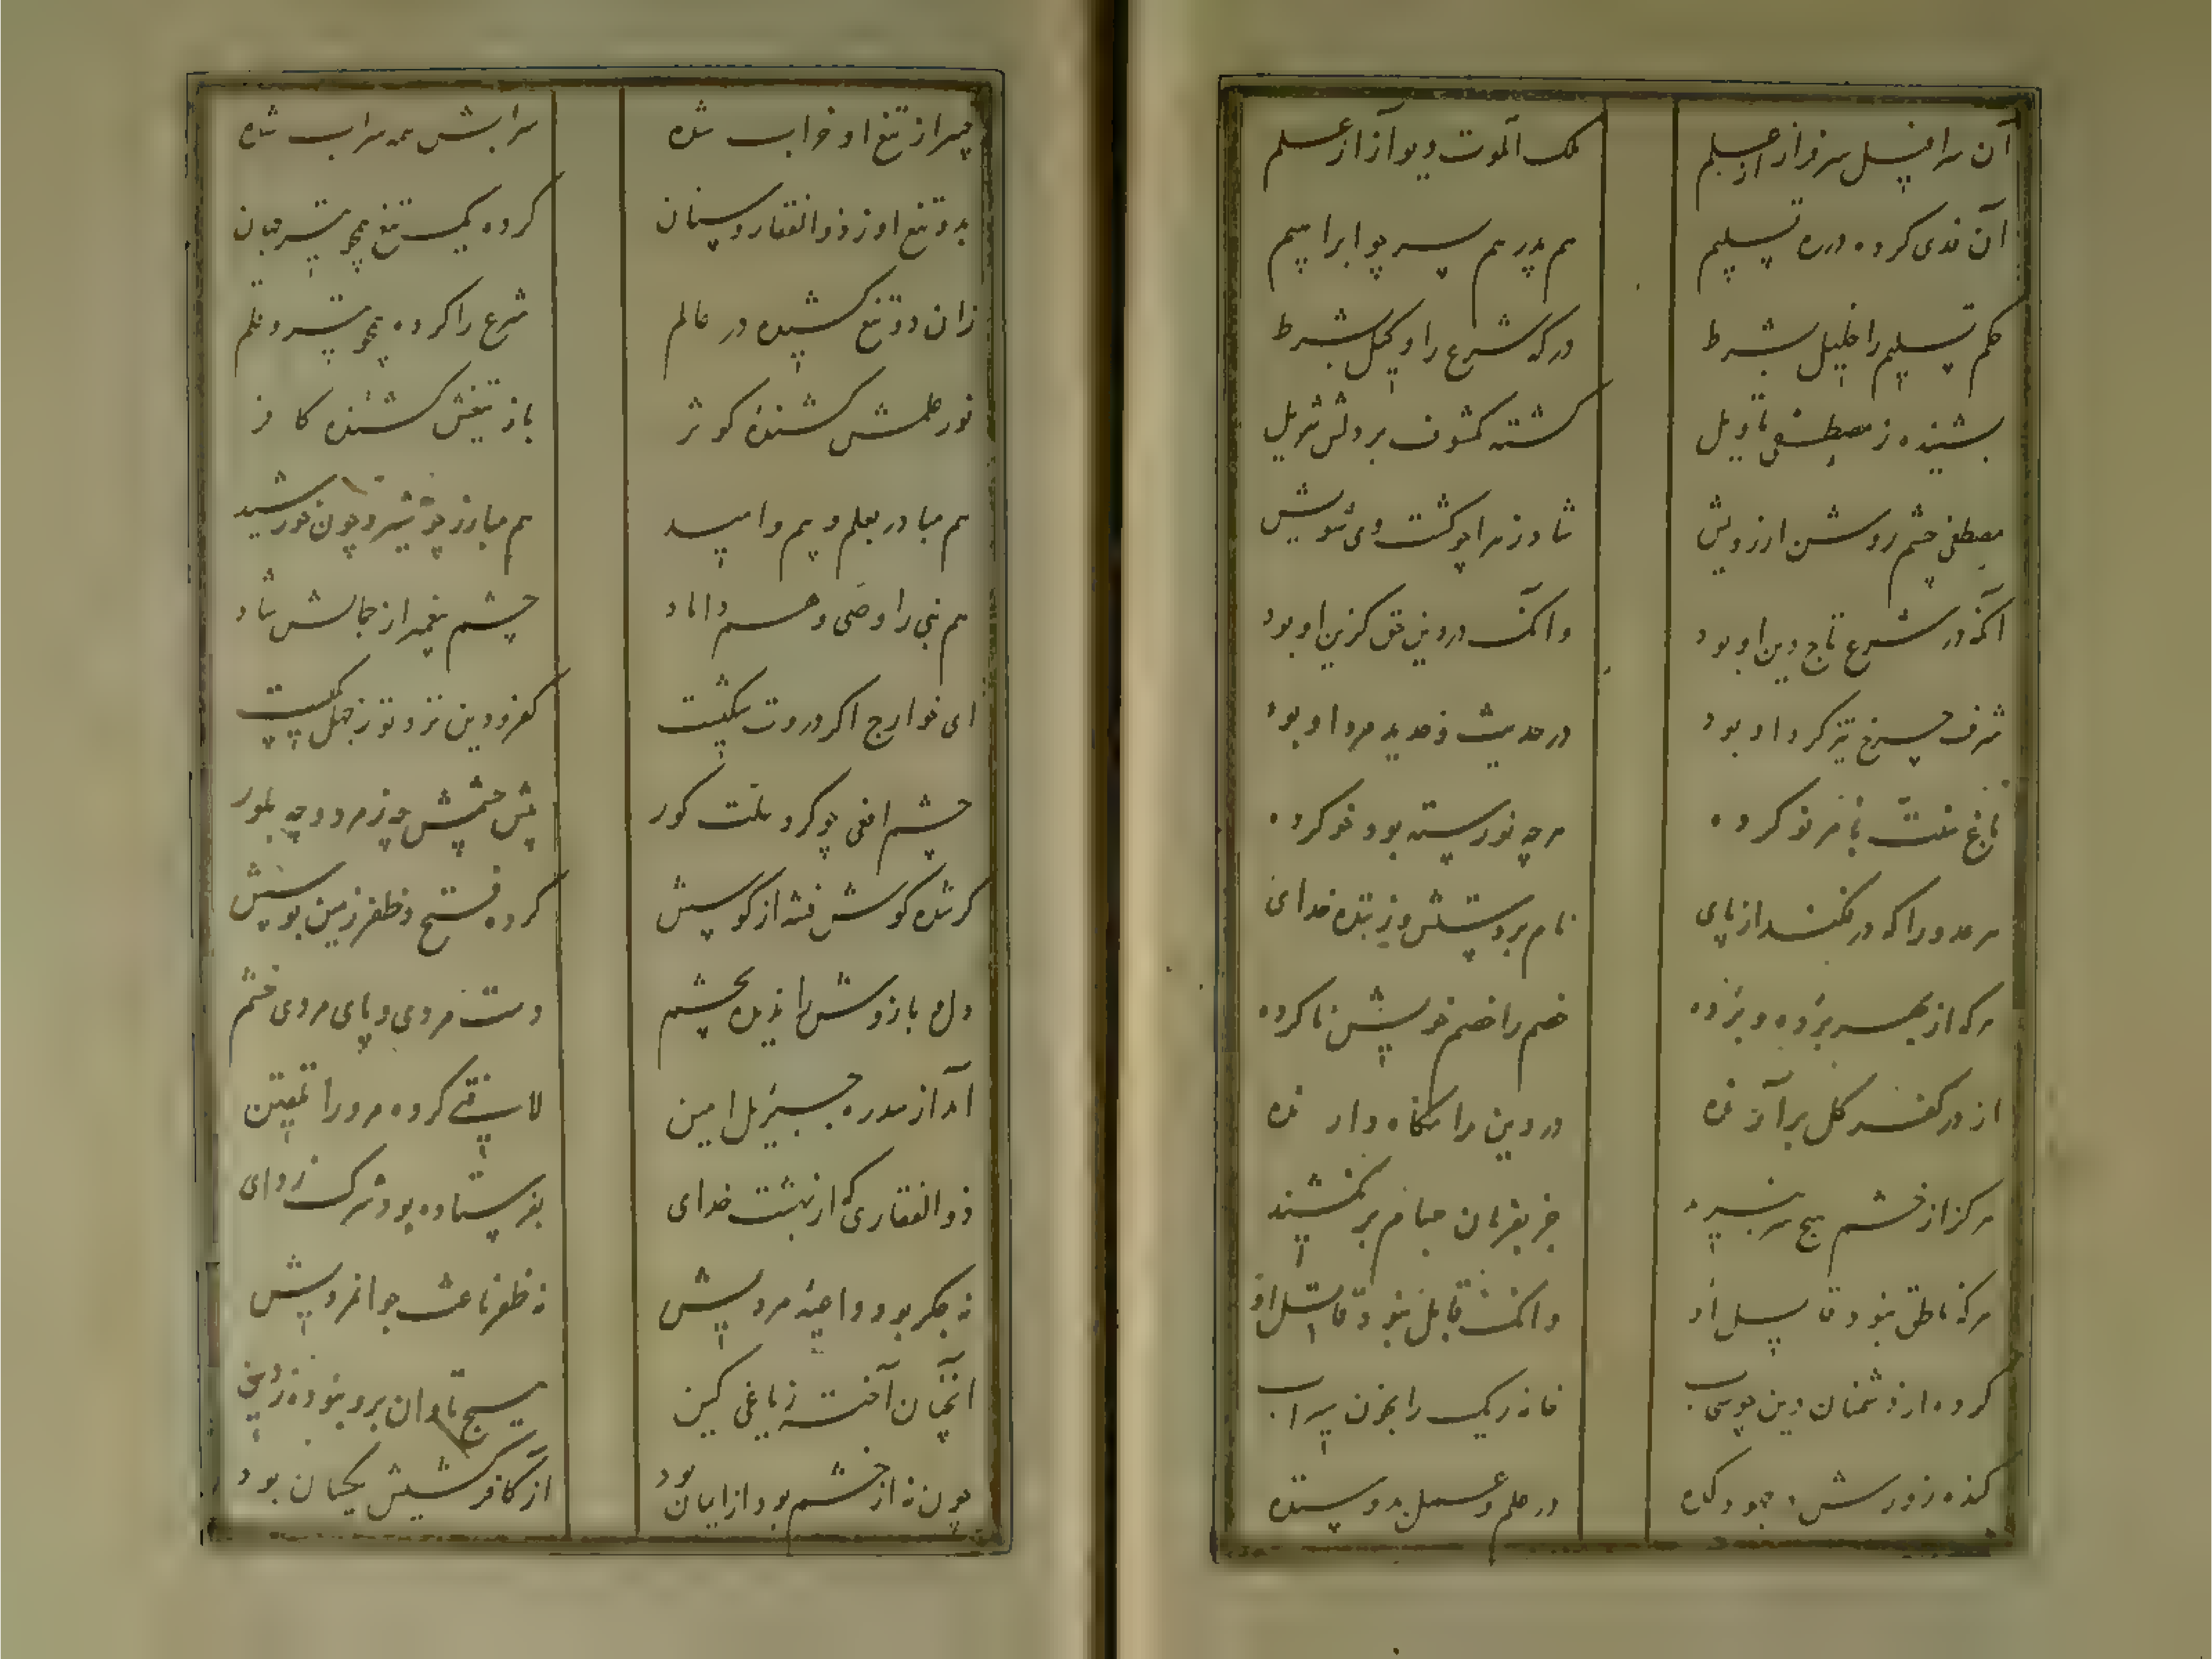 آن سرافیل سرفراز از علم ملک الموت دیو آز از علم
آن فدی کرده در ره تسلیم هم پدر هم پسر چو ابراهیم
حکم تسلیم را خلیل بشرط درکه شرع را وکیل بشرط
بشنیده ز مصطفی تاویل گشته مکشوف بر دلش تنزیل
مصطفی چشم روشن از رویش شاد زهرا چو گشت وی شویش
آنکه در شرع تاج دین او بود وانکه در دین حق گزین او بود
شرف چرخ تیزگرد او بود در حدیث و حدید مرد او بود
باغ سنت بامر نو کرده هرچه نورسته بود خو کرده
هر عدو را که در فکند از پای نام بر دستش و زننده خدای
هرکه از بهر بزده و بزده خصم را خصم خویش نا کرده
از در کفر کل برآرنده در دین را نگاه دارنده
هرگز از خشم هیچ سر نبرید جز بفرمان حسام بر نکشید
هرکه ناطق نبود قایل او وانکه قابل نبود قاتل او
کرده از دشمنان دین چو سحاب خانه ریک را بخون سیراب
کنده زورش در جهودکده در علم و عمل بدو ستده
چهر از تیغ او خراب شده سرابش همه سراب شده
بدو تیغ او ز ذوالفقار و سنان کرده یک تیغ همچو تیر جهان
زان دو تیغ کشیده در عالم شرع را کرده همچو تیر و قلم
نور علمش کشنده کوثر باز تیغش کشنده کافر
هم مبادر بعلم و هم و امید هم مبارز چو شیر و چون خورشید
هم نبی را وصی و هم داماد چشم پیغمبر از جمالش شاد
ای خوارج اگر درونت شکیست کفر و دین نزد تو ز جهل یکیست
چشم افعی چو کرد ملت کور پیش چشمش چه زمرد و چه بلور
کر شده گوش فتنه از کوسش کرده فتح و ظفر زمین بوسش
دل و بازوش را ندیده بچشم دست مردی و پای مردی خشم
آمد از سدره جبرئیل امین لافتی کرده مرو را تلقین
ذوالفقاری که از بهشت خدای بفرستاده بود شرک زدای
نه جگر بود داعیه مردیش نه ظفر باعث جوانمردیش
آنچنان آخت ز باغی کین هیچ تاوان برو نبود ز دین
چون نه از خشم بود از ایمان بود آن کافر کشیش یکسان بود